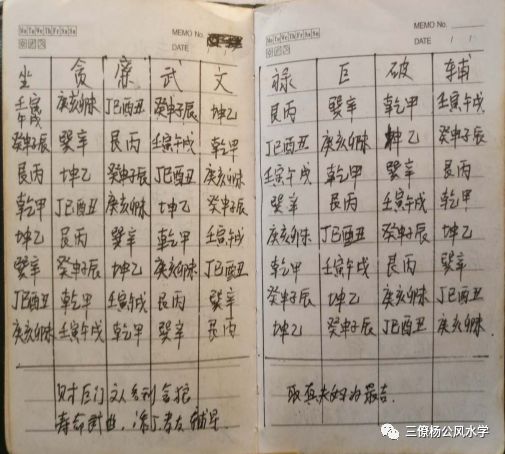 Mo Tu We Th Fr Sa Su
MEMO No.
DATE / /
坐 贪 廉 武 文
壬寅午戌 庚亥卯未 丁巳酉丑 癸申子辰 坤乙
癸申子辰 巽辛 艮丙 壬寅午戌 乾甲
艮丙 坤乙 癸申子辰 丁巳酉丑 庚亥卯未
乾甲 丁巳酉丑 庚亥卯未 坤乙 癸申子辰
坤乙 艮丙 巽辛 乾甲 壬寅午戌
巽辛 癸申子辰 坤乙 庚亥卯未 丁巳酉丑
丁巳酉丑 乾甲 壬寅午戌 艮丙 巽辛
庚亥卯未 壬寅午戌 乾甲 巽辛 艮丙
财巨门 文人名利贪狼
寿命武曲，添丁孝友辅星
Mo Tu We Th Fr Sa Su
MEMO No.
DATE / /
禄 巨 破 辅
艮丙 巽辛 乾甲 壬寅午戌
丁巳酉丑 庚亥卯未 坤乙 癸申子辰
壬寅午戌 乾甲 巽辛 艮丙
巽辛 艮丙 壬寅午戌 乾甲
庚亥卯未 丁巳酉丑 癸申子辰 坤乙
乾甲 壬寅午戌 艮丙 巽辛
癸申子辰 坤乙 庚亥卯未 丁巳酉丑
坤乙 癸申子辰 丁巳酉丑 庚亥卯未
夫妇为最吉.
三僚杨公风水学